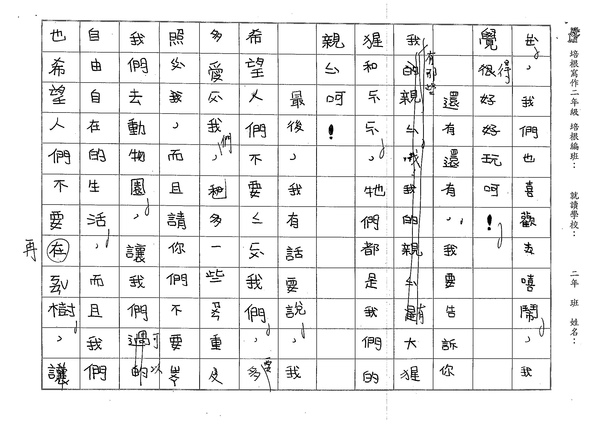 培根寫作二年級 培根編班： 就讀學校： 二年 班 姓名：
，我們也喜歡去嘻鬧，我
覺得很好好玩呵！
還有還有，我要告訴你
有那些
我的親 我的親 有大猩
猩和 ，牠們都是我們的
親 呵！
最後，我有話要說，我
希望人們不要 我們，要多
多愛 我們，和多一些 重，及
照 我，而且請你們不要
我們去動物園，讓我們可以過的
自由自在的生活，而且我們
也希望人們不要在 樹，讓
再